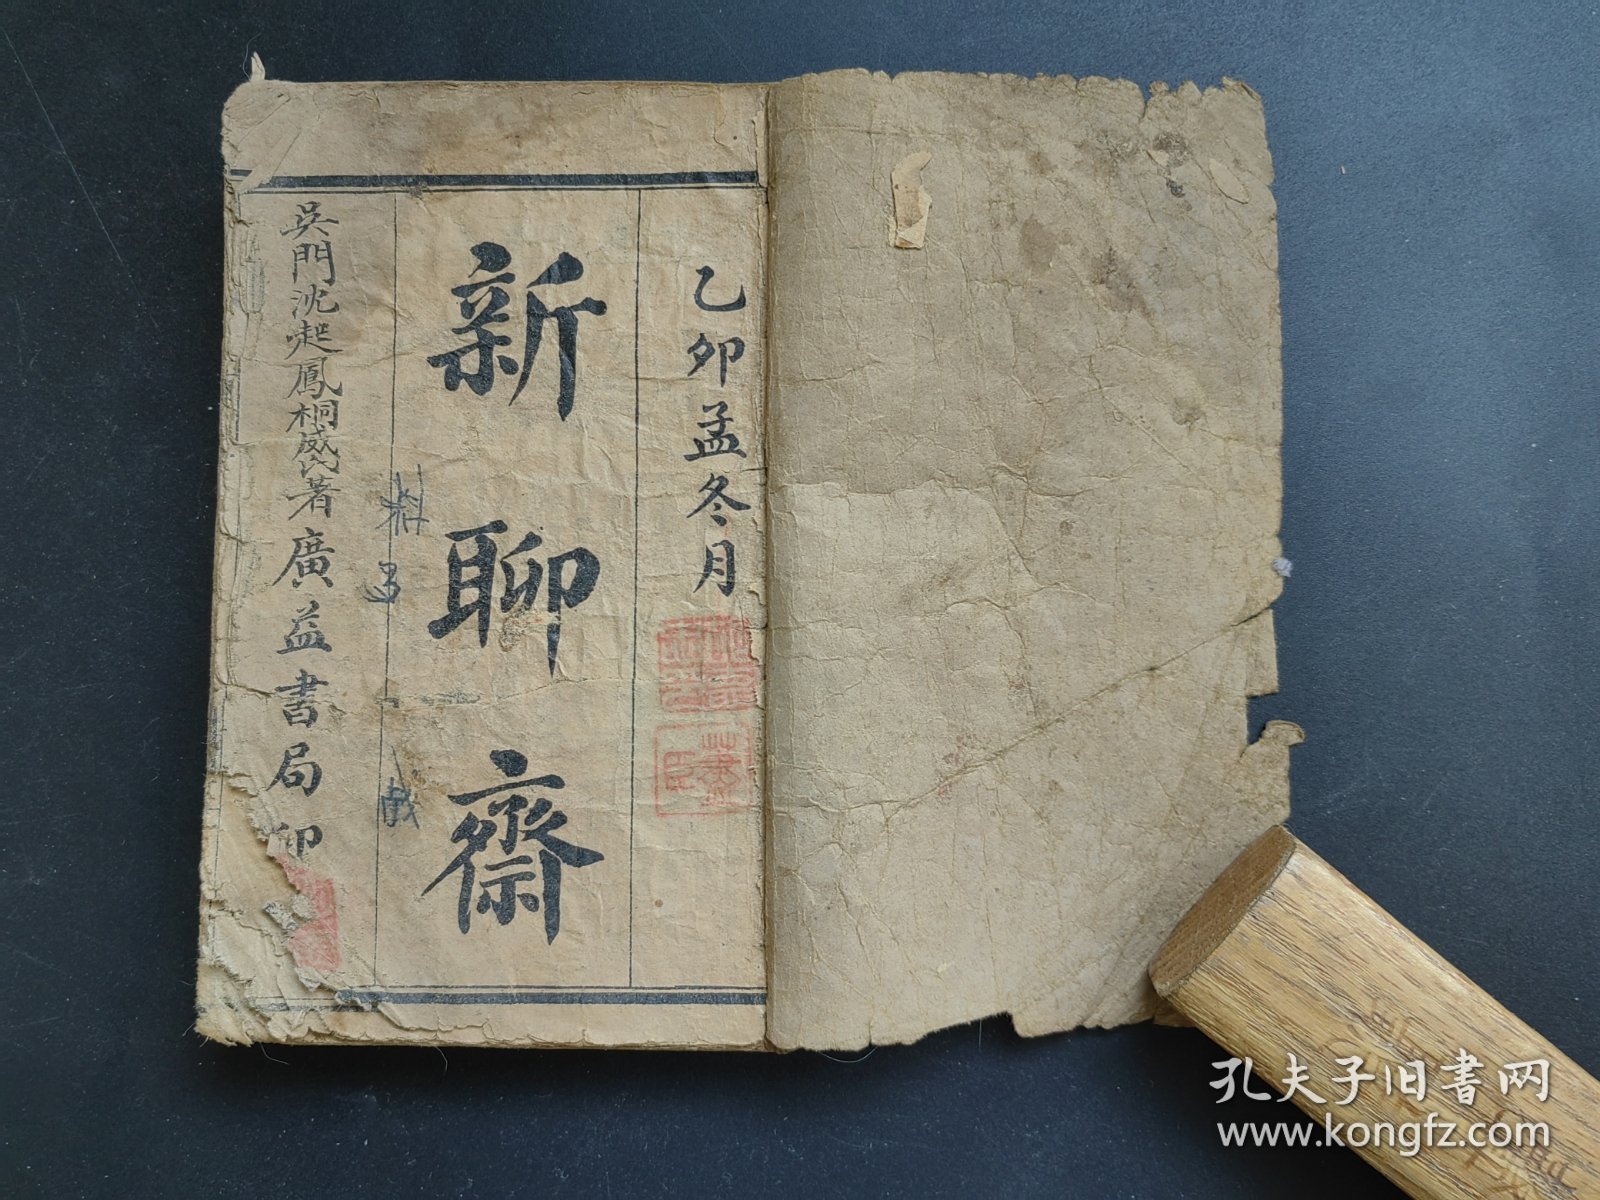 乙卯孟冬月
新聊齋
吳門沈起鳳桐威氏著廣益書局印
孔夫子旧书网
www.kongfz.com